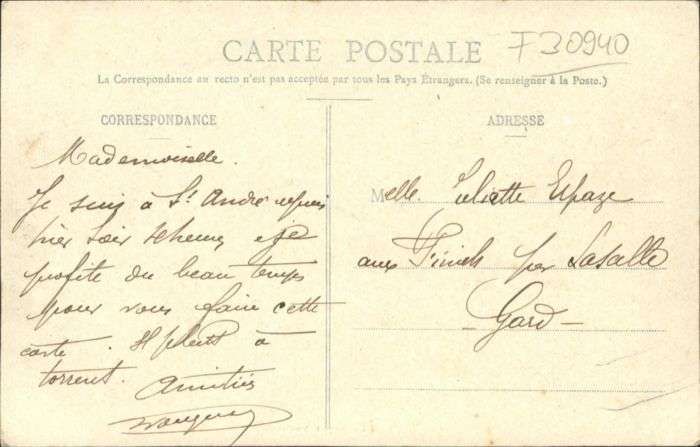 F 30940
CARTE POSTALE
La Correspondance au recto n'est pas acceptée par tous les Pays Étrangers. (Se renseigner à la Poste.)
CORRESPONDANCE
Mademoiselle.
Je suis à St André depuis
hier soir 4 heures et je
profite du beau temps
pour vous faire cette
carte. Il pleut à
torrent. Amitiés
ADRESSE
Melle. Juliette Espaze
aux par Lasalle
- Gard -